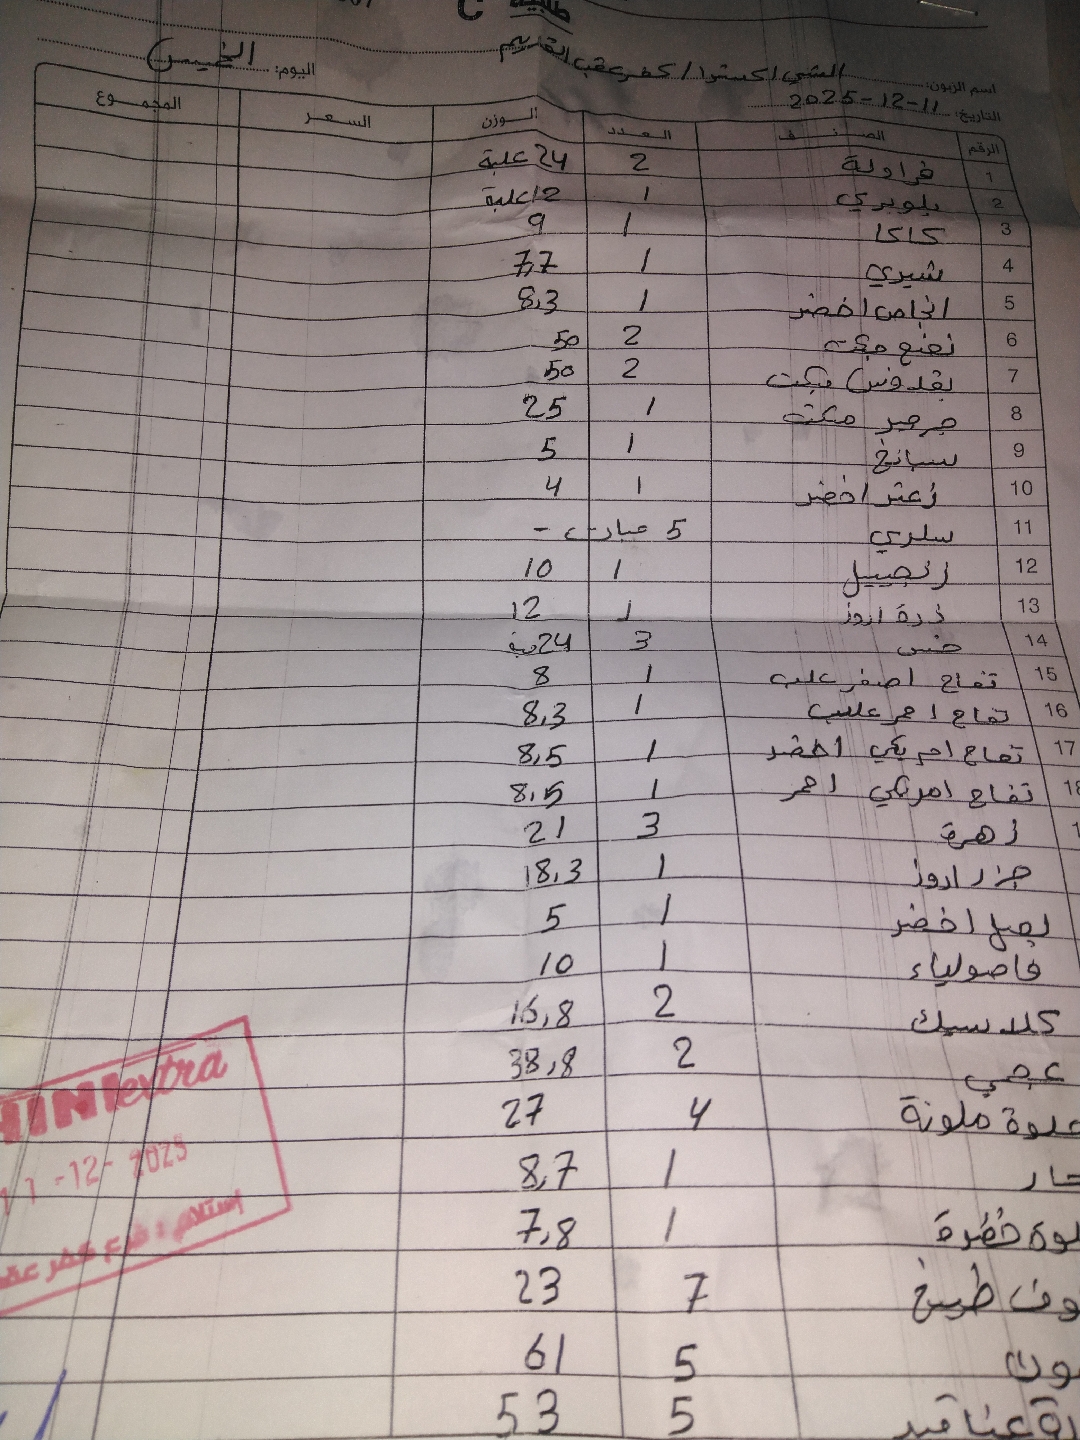 طلبية
اليوم: الخميس
اسم الزبون: الشني اكسترا / كفر عقب القديم
التاريخ: 11-12-2025
الرقم الصنف العدد الوزن السعر المجموع
1 فراولة 2 24 علبة
2 بلوبري 1 12 علبة
3 كاكا 1 9
4 شيري 1 7,7
5 انجاص اخضر 1 8,3
6 نعنع مكت 2 50
7 بقدونس مكت 2 50
8 جرجير مكت 1 25
9 سبانخ 1 5
10 زعتر اخضر 1 4
11 سلري 5 -
12 زنجبيل 1 10
13 ذرة اروز 1 12
14 خس 3 24
15 تفاح اصفر علب 1 8
16 تفاح احمر علب 1 8,3
17 تفاح امريكي اخضر 1 8,5
18 تفاح امريكي احمر 1 8,5
زهرة 3 21
جزر اروز 1 18,3
بصل اخضر 1 5
فاصولياء 1 10
كلاسيك 2 16,8
عجمي 2 38,8
ملونة 4 27
حار 1 8,7
خضرة 1 7,8
طبيخ 7 23
5 61
عناقيد 5 53
extra
11-12-2025
استلام: فرع كفر عقب